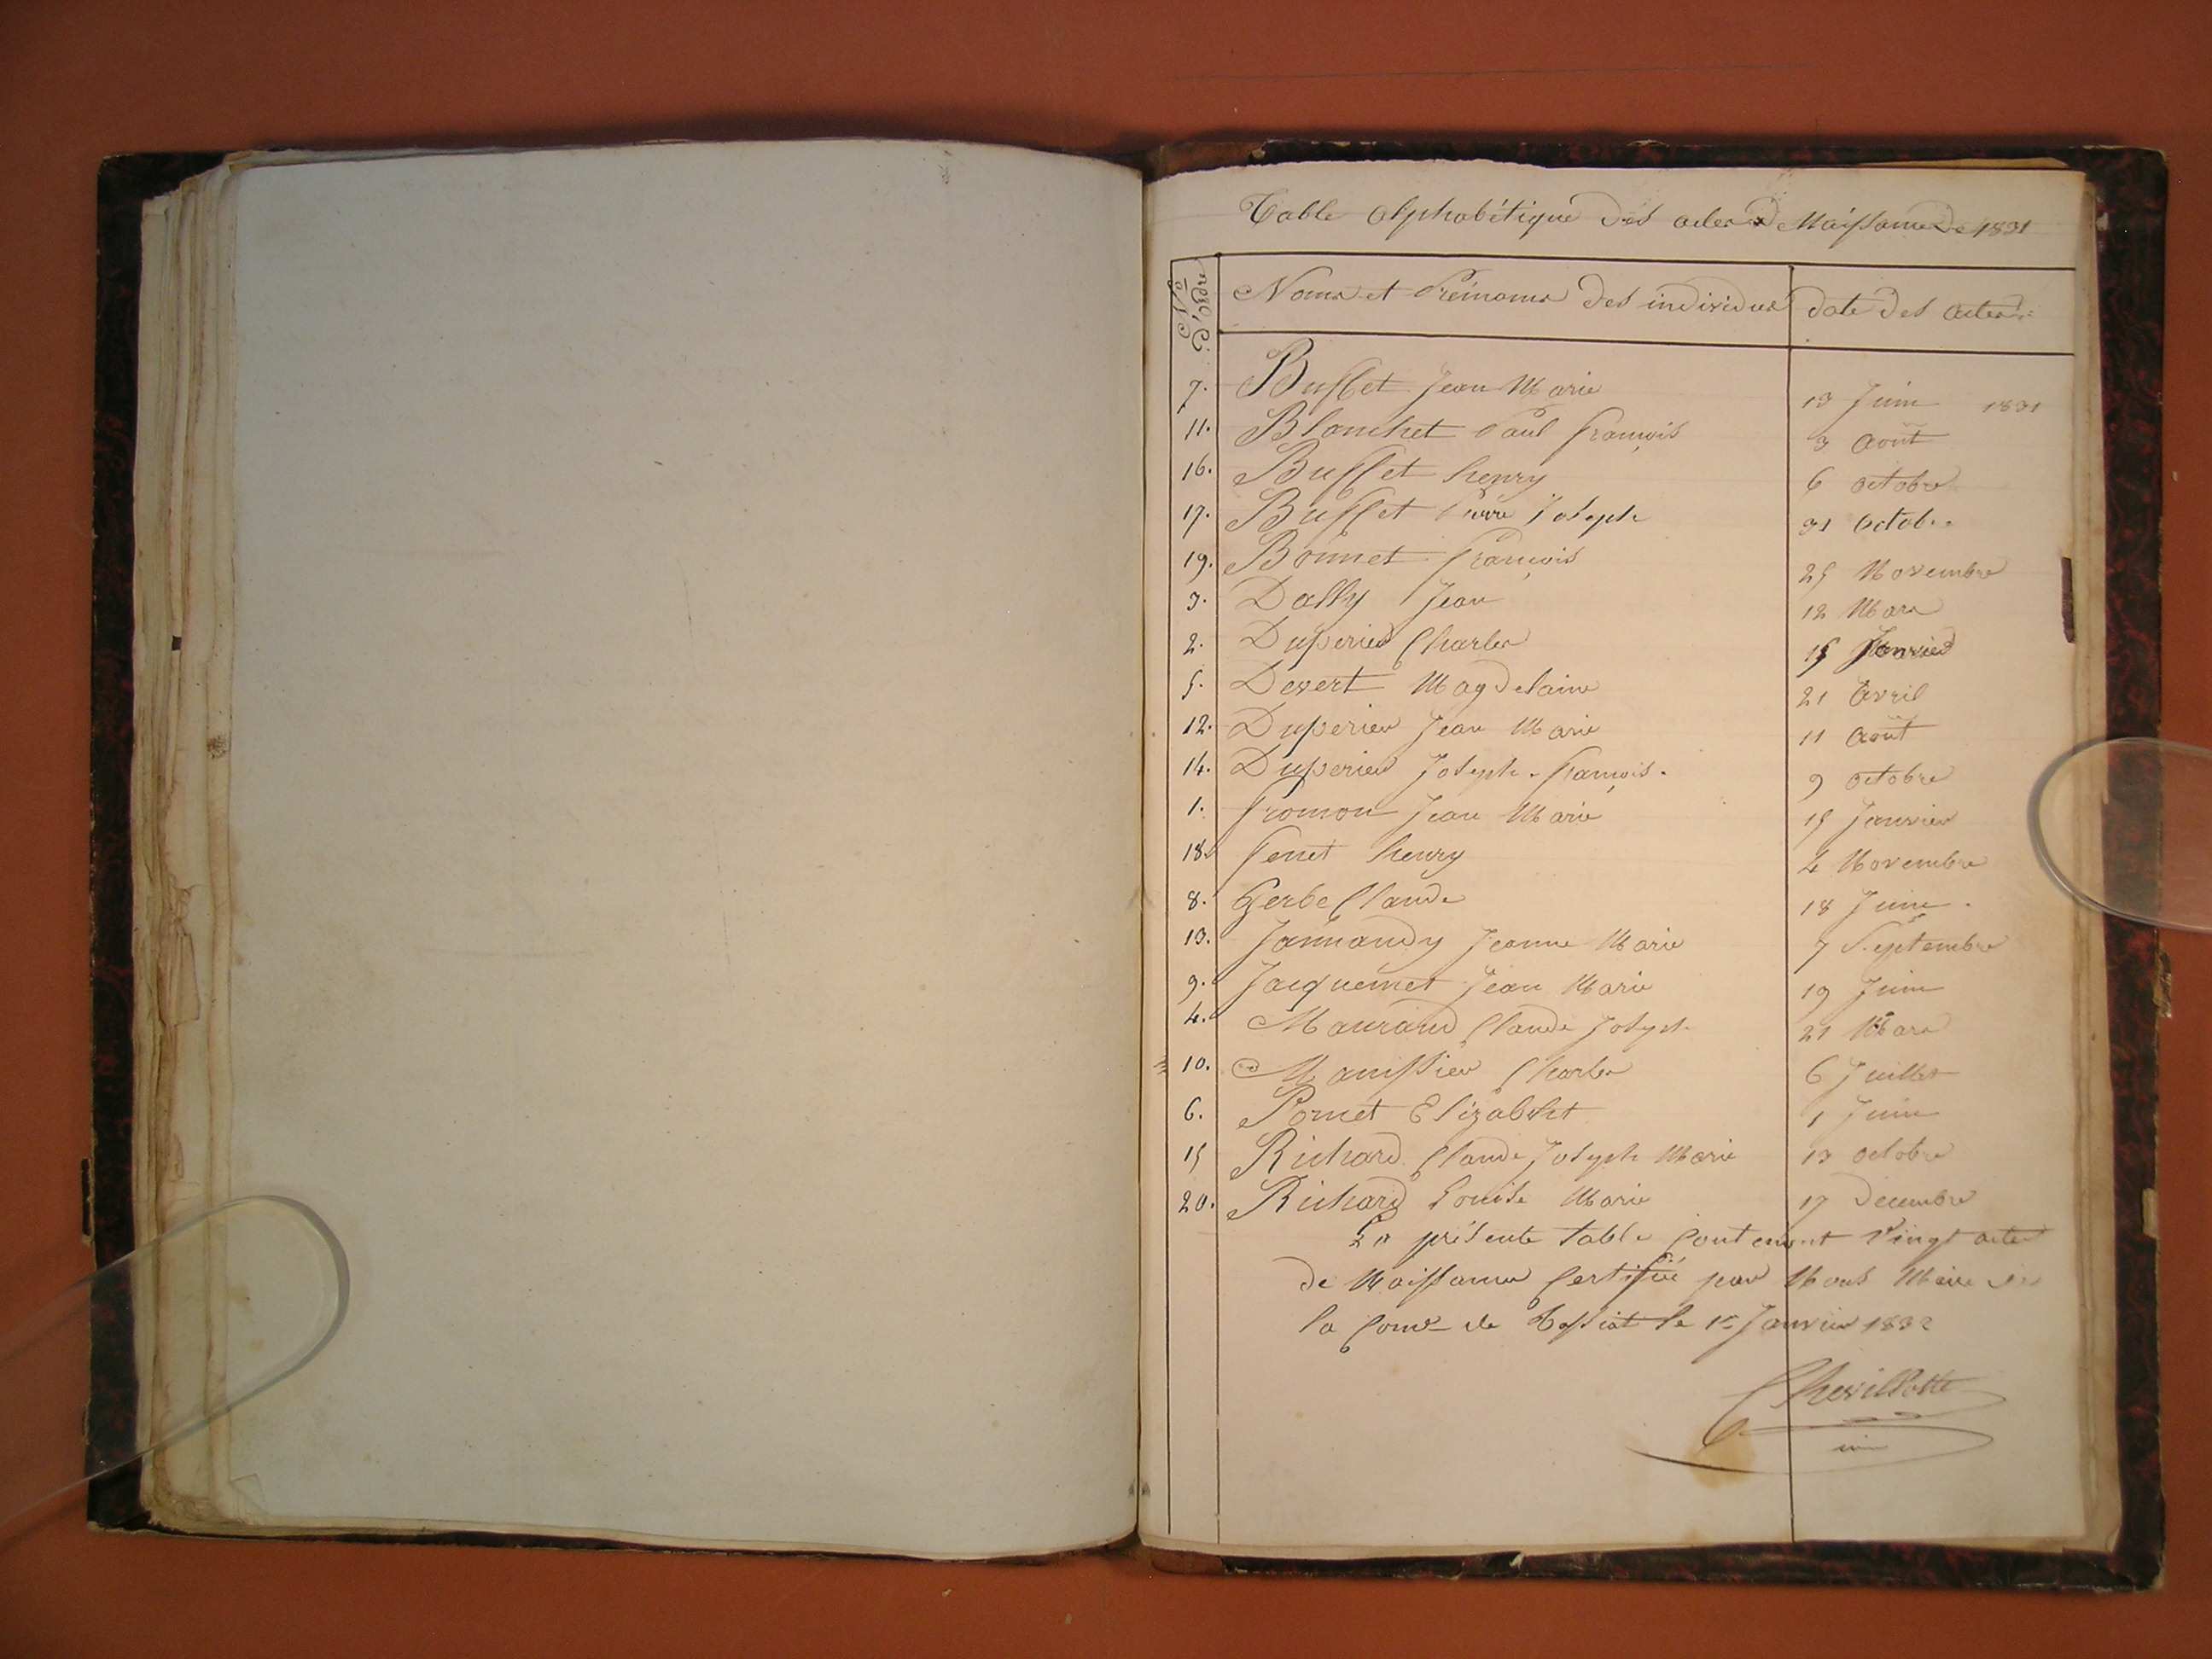 Table alphabétique des actes de Naissance de 1831
N° d'ordre
Noms et Prénoms des individus date des actes
7. Buffet Jean Marie 13 Juin 1831
11. Blanchet Paul françois 3 août
16. Buffet henry 6 octobre
17. Buffet Pierre Joseph 31 octobre
19. Bonnet françois 25 Novembre
3. Dally Jean 12 Mars
2. Duperier Charles 15 Janvier
5. Devert Magdelaine 21 avril
12. Duperier Jean Marie 11 août
14. Duperier Joseph françois. 9 octobre
1. fromon Jean Marie 15 Janvier
18. fenet henry 4 Novembre
8. Gerbe Claude 18 Juin.
13. Jannandy Jeanne Marie 7 Septembre
9. Jacquemet Jean Marie 19 Juin
4. Maurand Claude Joseph 21 Mars
10. Manissier Charles 6 Juillet
6. Pomet Elizabhet 1 Juin
15 Richard Claude Joseph Marie 13 octobre
20. Richard Louise Marie 17 Decembre
La présente table Contenant vingt actes
de Naissance Certifié par Nous Maire de
la Come de le 1er Janvier 1832
Chevillotte